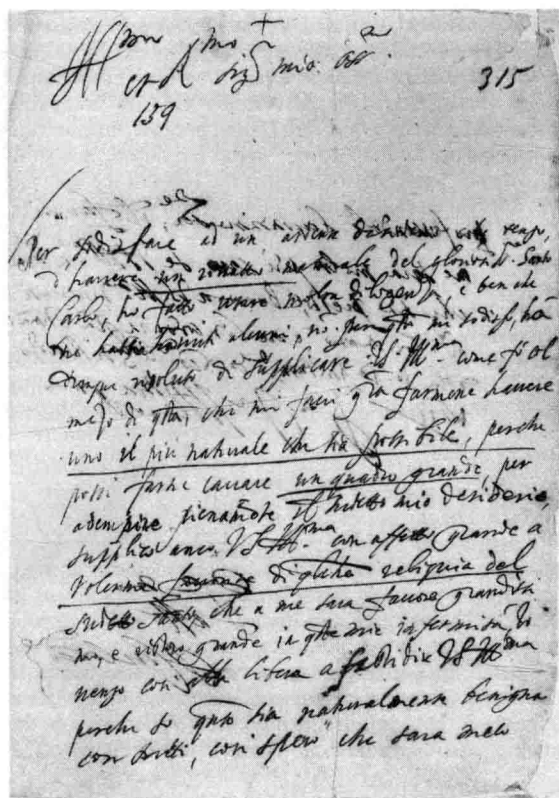 Ill.mo
et R.mo sig.r mio oss.
159
315
Per sodisfare ad un ardente
d'havere un ritratto naturale del glorioso Santo
Carlo, ho fatto usare molta diligenza, e ben che
ne habbia alcuni, no mi sodisf, ho
risoluto di supplicare V.S. Ill.ma come fo al
mezo di qta, che mi facci gra farmene havere
uno il piu naturale che sia possibile, perche
possi farne cavare un quadro grande, per
adempire pienamte il sudetto mio desiderio,
supplico anco V.S. Ill.ma con affetto grande a
volermi favorire di qlche reliquia del
sudetto Santo, che a me sara favore grandissi
mo, e grande in qte mie infermita
vengo così alla libera a fastidir V.S. Ill.ma
perche so qnto sia naturalmente benigna
con tutti, così spero che sara meco